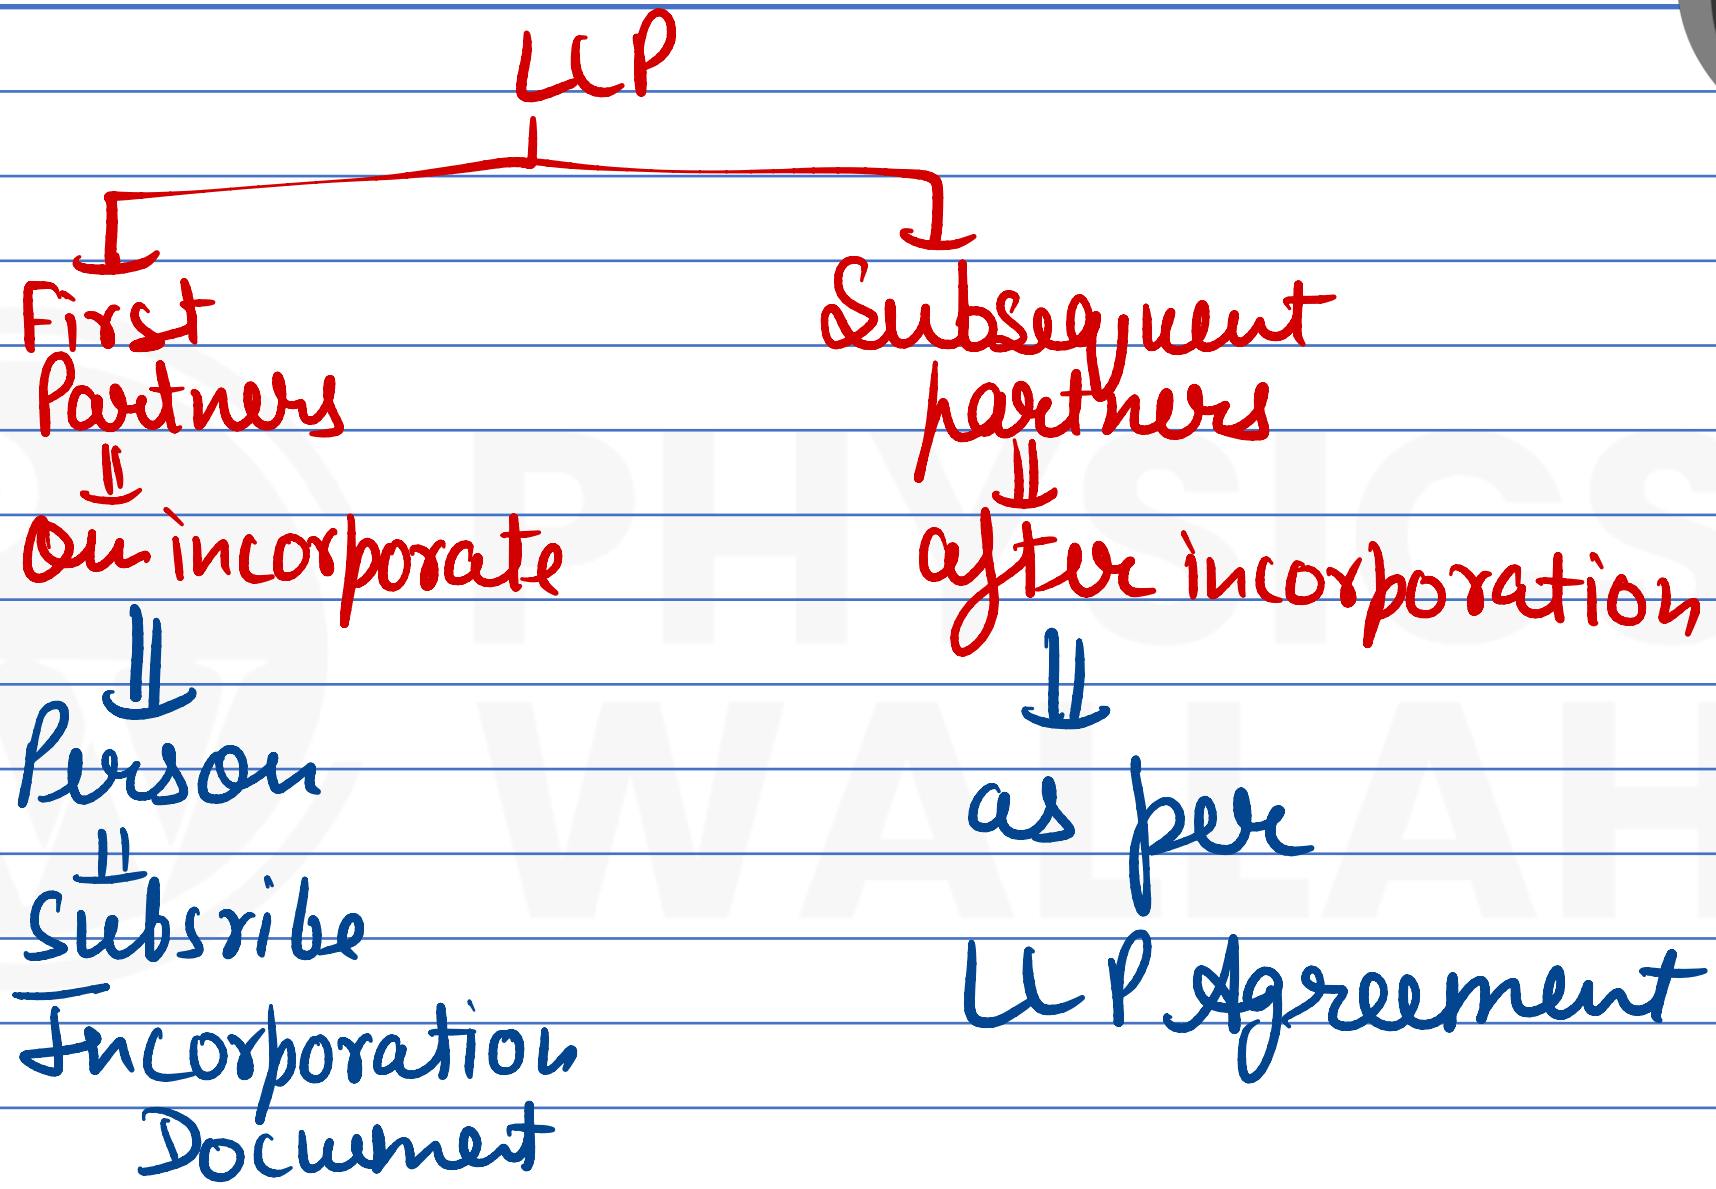 LLP
First
Partners
On incorporate
Person
Subsribe
Incorporation
Document
Subsequent
partners
after incorporation
as per
LLP Agreement
PHYSICS
WALLAH